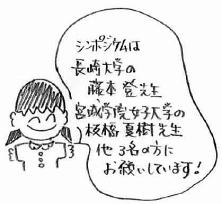 シンポジウムは
長崎大学の
藤本 登先生
宮城学院女子大学の
板橋夏樹先生
他 3名の方に
お願いしています!